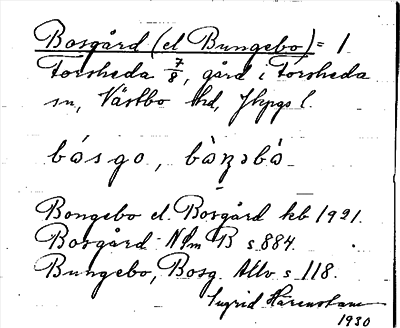 Bosgård (el Bungebo) = 1
Forsheda 7/8, gård i Forsheda
sn, Västbo hd, Jkpgs l.
básgo, bàŋəbá
Bongebo el. Bosgård kb 1921.
Bosgård NPm B s. 884.
Bungebo, Bosg. Mtlv s 118.
Ingrid Härenstam
1930